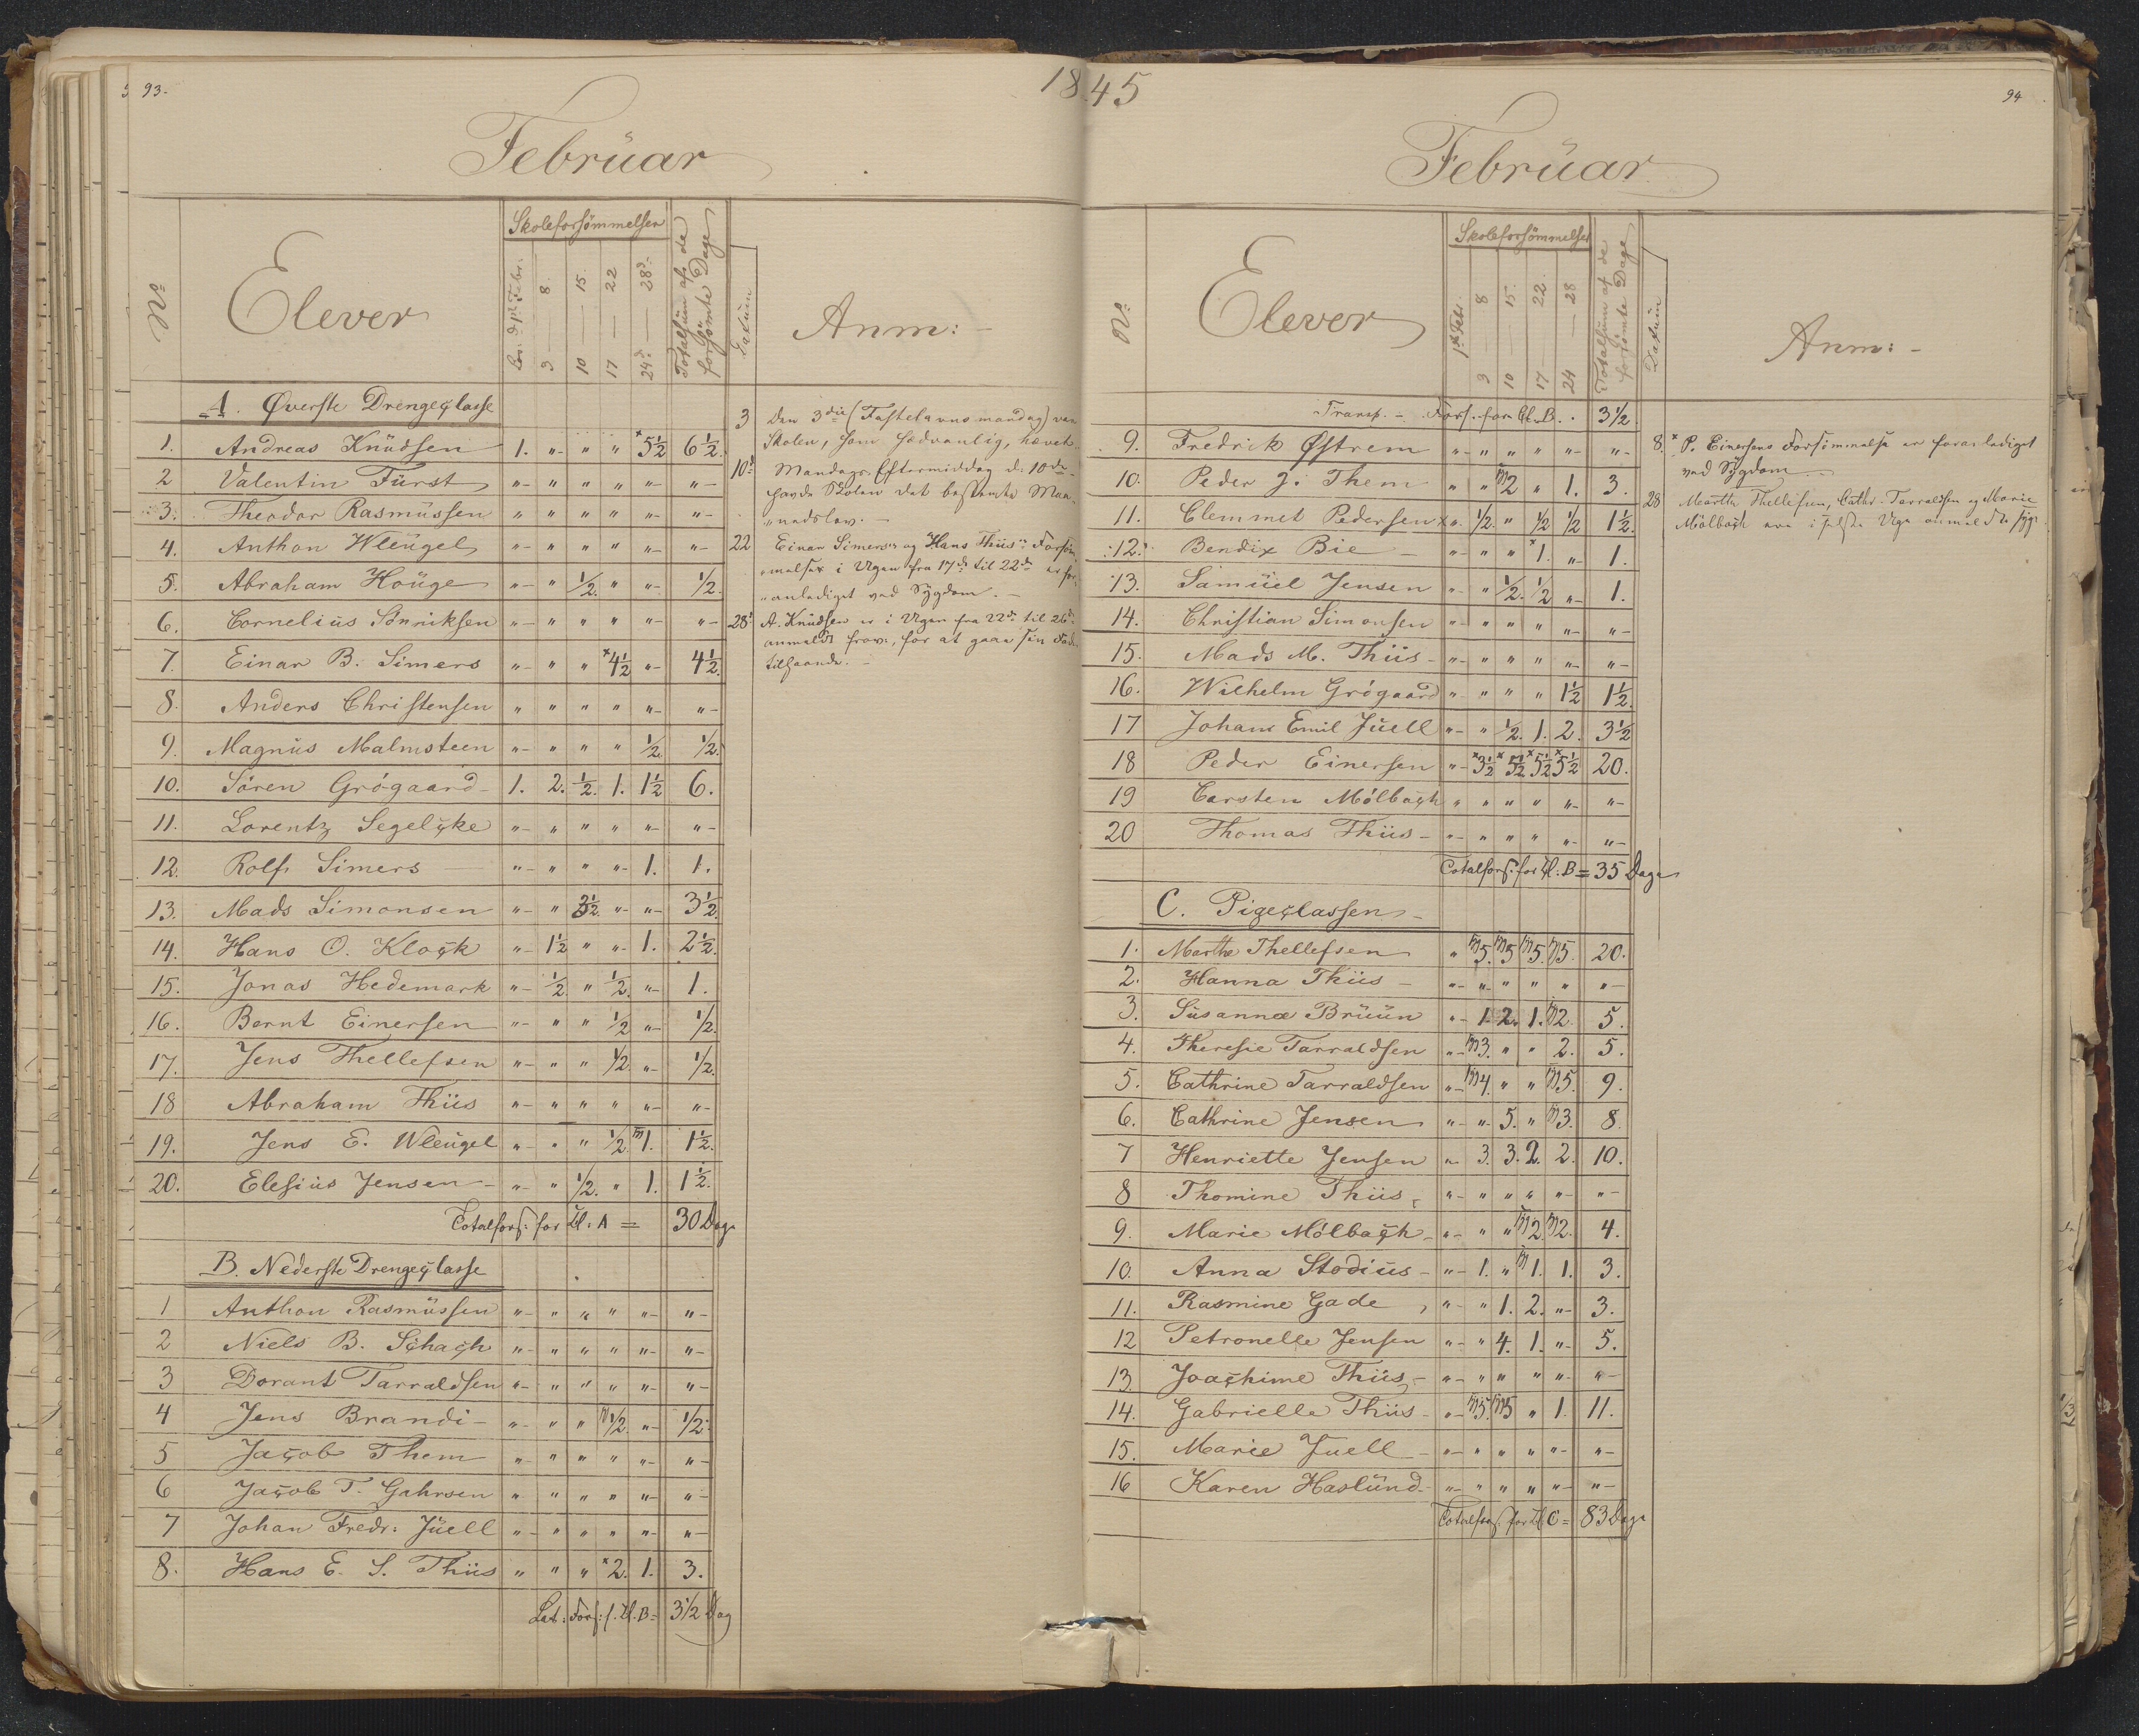 93.
1845
94
Februar
No
Elever
Skoleforsömmelser
Lör: d: 1ste Febr:
3 — 8.
10 — 15.
17 — 22
24de — 28de
Totalsum af de forsömte Dage
Datum
Anm:
A. Øverste Drengeclasse
1. Andreas Knudsen 1. " " " ×5½ 6½.
2 Valentin Fürst " " " " " "
3. Theodor Rasmussen " " " " " "
4. Anthon Wleugel " " " " " "
5. Abraham Houge " " ½. " " ½.
6. Cornelius Sönniksen " " " " " "
7. Einar B. Simers " " " ×4½ " 4½.
8. Anders Christensen " " " " " "
9. Magnus Malmsteen " " " " ½. ½.
10. Sören Grögaard 1. 2. ½. 1. 1½ 6.
11. Lorentz Segelcke " " " " " "
12. Rolf Simers " " " " 1. 1.
13. Mads Simonsen " " 3½. " " 3½.
14. Hans O. Klock " 1½ " " 1. 2½.
15. Jonas Hedemark " ½. " ½. " 1.
16. Bernt Einersen " " " ½ " ½.
17. Jens Thellefsen " " " ½. " ½.
18 Abraham Thiis " " " " " "
19. Jens E. Wleugel " " " ½. m1. 1½.
20. Elesius Jensen " " ½. " 1. 1½.
Totalfors: for Cl: A = 30 Dage
B. Nederste Drengeclasse
1 Anthon Rasmussen " " " " " "
2 Niels B. Schach " " " " " "
3 Dorant Tarraldsen " " " " " "
4 Jens Brandi " " " m½. " ½.
5 Jacob Them " " " " " "
6 Jacob T. Gahrsen " " " " " "
7 Johan Fredr: Juell " " " " " "
8. Hans E. S. Thiis " " " ×2. 1. 3.
Lat: Fors: f. Cl. B = 3½ Dag
3 Den 3die (Fastelavnsmandag) var
Skolen, som sædvanlig, hævet.
10de Mandags Eftermiddag d: 10de
havde Skolen det bestemte Maa-
"nedslov.
22 Einar Simers's og Hans Thiis's Forsöm
"melser i Ugen fra 17de til 22de er for
"anlediget ved Sygdom.
28de A. Knudsen er i Ugen fra 22de til 26de
anmeldt frav:, for at gaae sin Fader
tilhaande.
Februar
No.
Elever
Skoleforsömmelser
1ste Febr.
3 — 8
10 — 15.
17 — 22.
24 — 28
Totalsum af de forsömte Dage
Datum
Anm:
Transp. Fors. for Cl. B. 3½
9. Fredrik Østrem " " " " " "
10. Peder J. Them " " m2 " 1. 3.
11. Clemmet Pedersen " ½. " ½ ½ 1½.
12. Bendix Bie " " " ×1. " 1.
13. Samuel Jensen " " ½. ½ " 1.
14. Christian Simonsen " " " " " "
15. Mads M. Thiis " " " " " "
16. Wilhelm Grögaard " " " " 1½ 1½.
17 Johan Emil Juell " " ½. 1. 2. 3½
18 Peder Einersen " ×3½ ×5½ ×5½ ×5½ 20.
19 Carsten Mölbach " " " " " "
20 Thomas Thiis " " " " " "
Totalfors: for Cl: B = 35 Dage
C. Pigeclassen
1. Marthe Thellefsen " m5. m5 m5. m5. 20.
2. Hanna Thiis " " " " " "
3. Susanna Bruun " 1. 2. 1. m2. 5.
4. Theresie Tarraldsen " m3. " " 2. 5.
5. Cathrine Tarraldsen " m4. " " m5. 9.
6. Cathrine Jensen " " 5. " m3. 8.
7 Henriette Jensen " 3. 3. 2. 2. 10.
8 Thomine Thiis " " " " " "
9. Marie Mölbach " " " m2 m2. 4.
10. Anna Stodius " 1. " m1. 1. 3.
11. Rasmine Gade " " 1. 2. " 3.
12 Petronelle Jensen " " 4. 1. " 5.
13. Joachime Thiis " " " " " "
14. Gabrielle Thiis " m5. m5 " 1. 11.
15. Marie Juell " " " " " "
16 Karen Haslund " " " " " "
Totalfors: for Cl C = 83 Dage
8. × P. Einersens Forsömmelse er foranlediget
ved Sygdom
28 Marthe Thellefsen, Cathr. Tarraldsen og Marie
Mölbach ere i sidste Uge anmeldte syge